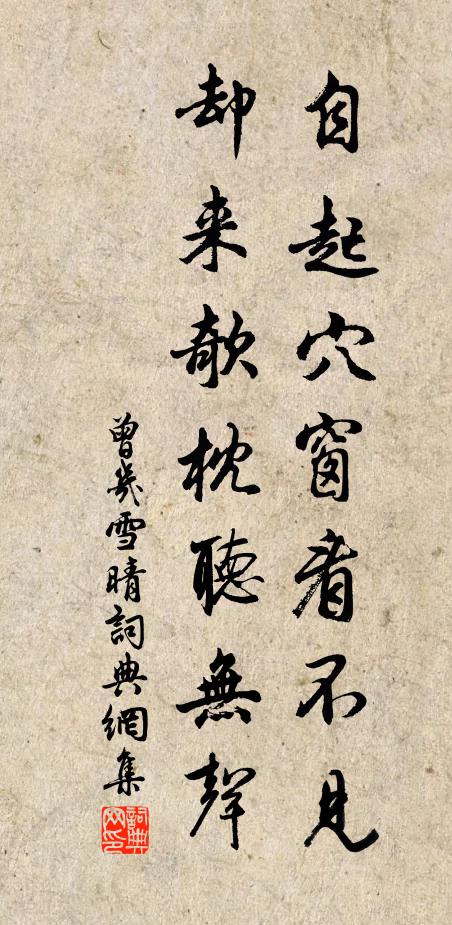 自起穴窗看不見
却来欹枕聽無聲
曾幾雪晴詞典網集
詞典网印